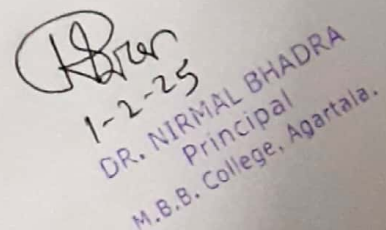 1-2-25
DR. NIRMAL BHADRA
Principal
M.B.B. College, Agartala.